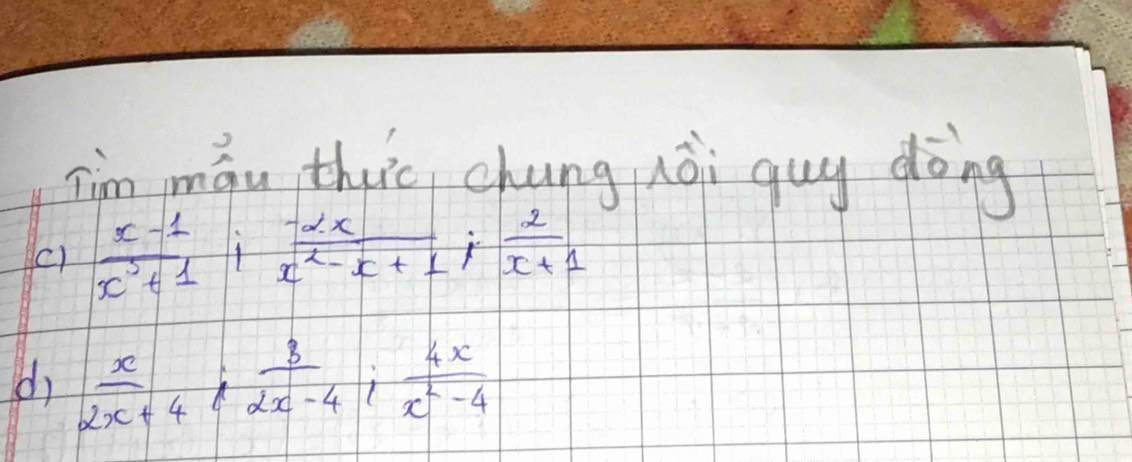 Tìm mẫu thức chung rồi quy đồng
c) \frac{x-1}{x^3+1} ; \frac{-2x}{x^2-x+1} ; \frac{2}{x+1}
d) \frac{x}{2x+4} ; \frac{3}{2x-4} ; \frac{4x}{x^2-4}